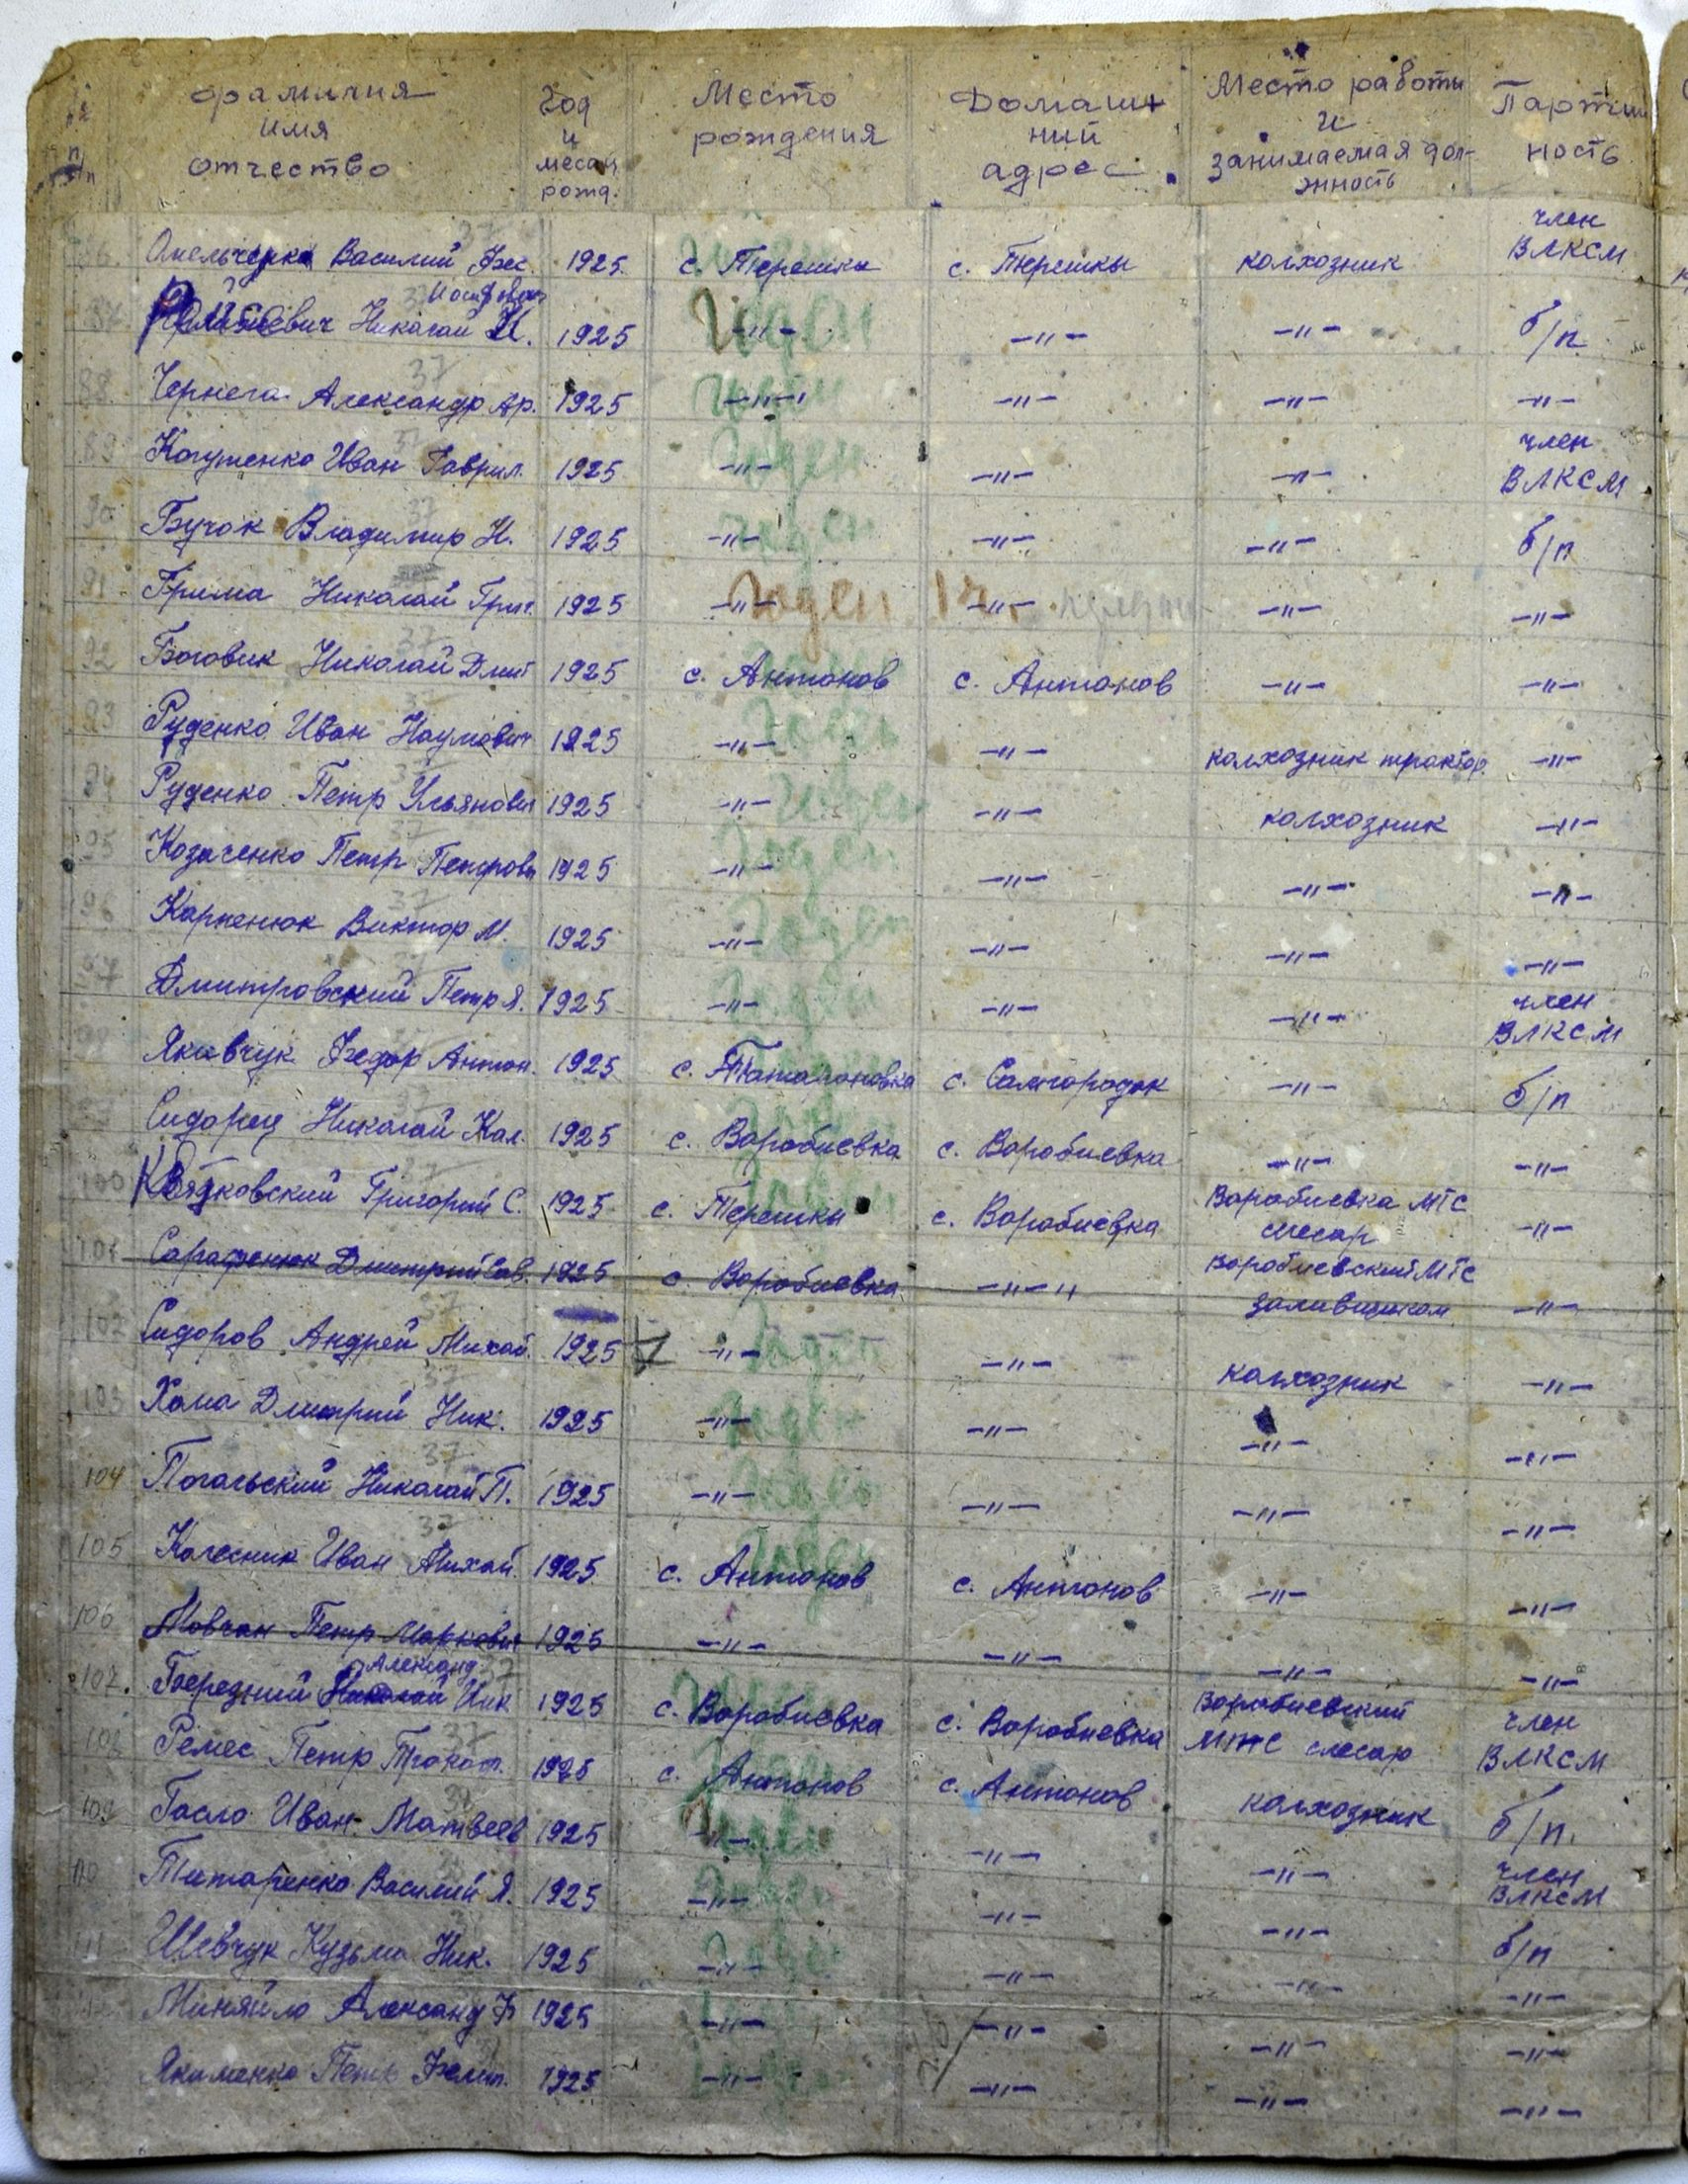 № п/п Фамилия имя отчество Год и месяц рожд. Место рождения Домашний адрес Место работы и занимаемая должность Партийность
86. Омельченко Василий Фес. 1925 с. Терешки с. Терешки колхозник член ВЛКСМ
87. Николай И. Иосифович 1925 -"- годен -"- -"- б/п
88. 37 Чернега Александр Ар. 1925 -"- годен -"- -"- -"-
89 37 Когутенко Иван Гаврил. 1925 -"- годен -"- -"- член ВЛКСМ
90 37 Бучок Владимир Н. 1925 -"- годен -"- -"- б/п
91 Грима Николай Григ. 1925 -"- годен -"- -"- -"-
92 37 Боговик Николай Дмит 1925 с. Антонов с. Антонов -"- -"-
93 37 Руденко Иван Наумович 1925 -"- годен -"- колхозник трактор. -"-
94 37 Руденко Петр Ульянович 1925 -"- годен -"- колхозник -"-
95 37 Козаченко Петр Петрови 1925 -"- годен -"- -"- -"-
96 37 Карпенюк Виктор М. 1925 -"- годен -"- -"- -"-
97 37 Дмитровский Петр Я. 1925 -"- годен -"- -"- член ВЛКСМ
98 Якивчук Федор Антон. 1925 с. Татариновка с. Самгородок -"- б/п
99 37 Сидорец Николай Кал. 1925 с. Воробиевка с. Воробиевка -"- -"-
100 37 Квятковский Григорий С. 1925 с. Терешки с. Воробиевка Воробиевка МТС слесар -"-
101 Сарафенюк Дмитрий Сав. 1925 с. Воробиевка -"-" Воробиевский МТС заливщиком -"-
102 37 Сидоров Андрей Михай. 1925 -"- годен -"- колхозник -"-
103 37 Хома Дмитрий Ник. 1925 -"- годен -"- -"- -"-
104 37 Погальский Николай П. 1925 -"- годен -"- -"- -"-
105 37 Колесник Иван Михай. 1925 с. Антонов годен с. Антонов -"- -"-
106 Мовчан Петр Маркович 1925 -"- -"- -"- -"-
107. 37 Бередний Николай Александ Ник 1925 с. Воробиевка с. Воробиевка Воробиевский МТС слесар член ВЛКСМ
108 37 Ремес Петр Прокоп. 1925 с. Антонов с. Антонов колхозник б/п.
109 37 Гасло Иван Матвеев 1925 -"- годен -"- -"- член ВЛКСМ
110 Титаренко Василий Я. 1925 -"- годен -"- -"- б/п
111 Шевчук Кузьма Ник. 1925 -"- годен -"- -"- -"-
Миняйло Александ Ф 1925 -"- -"- -"- -"-
Якименко Петр Филип. 1925 -"- -"- -"- -"-